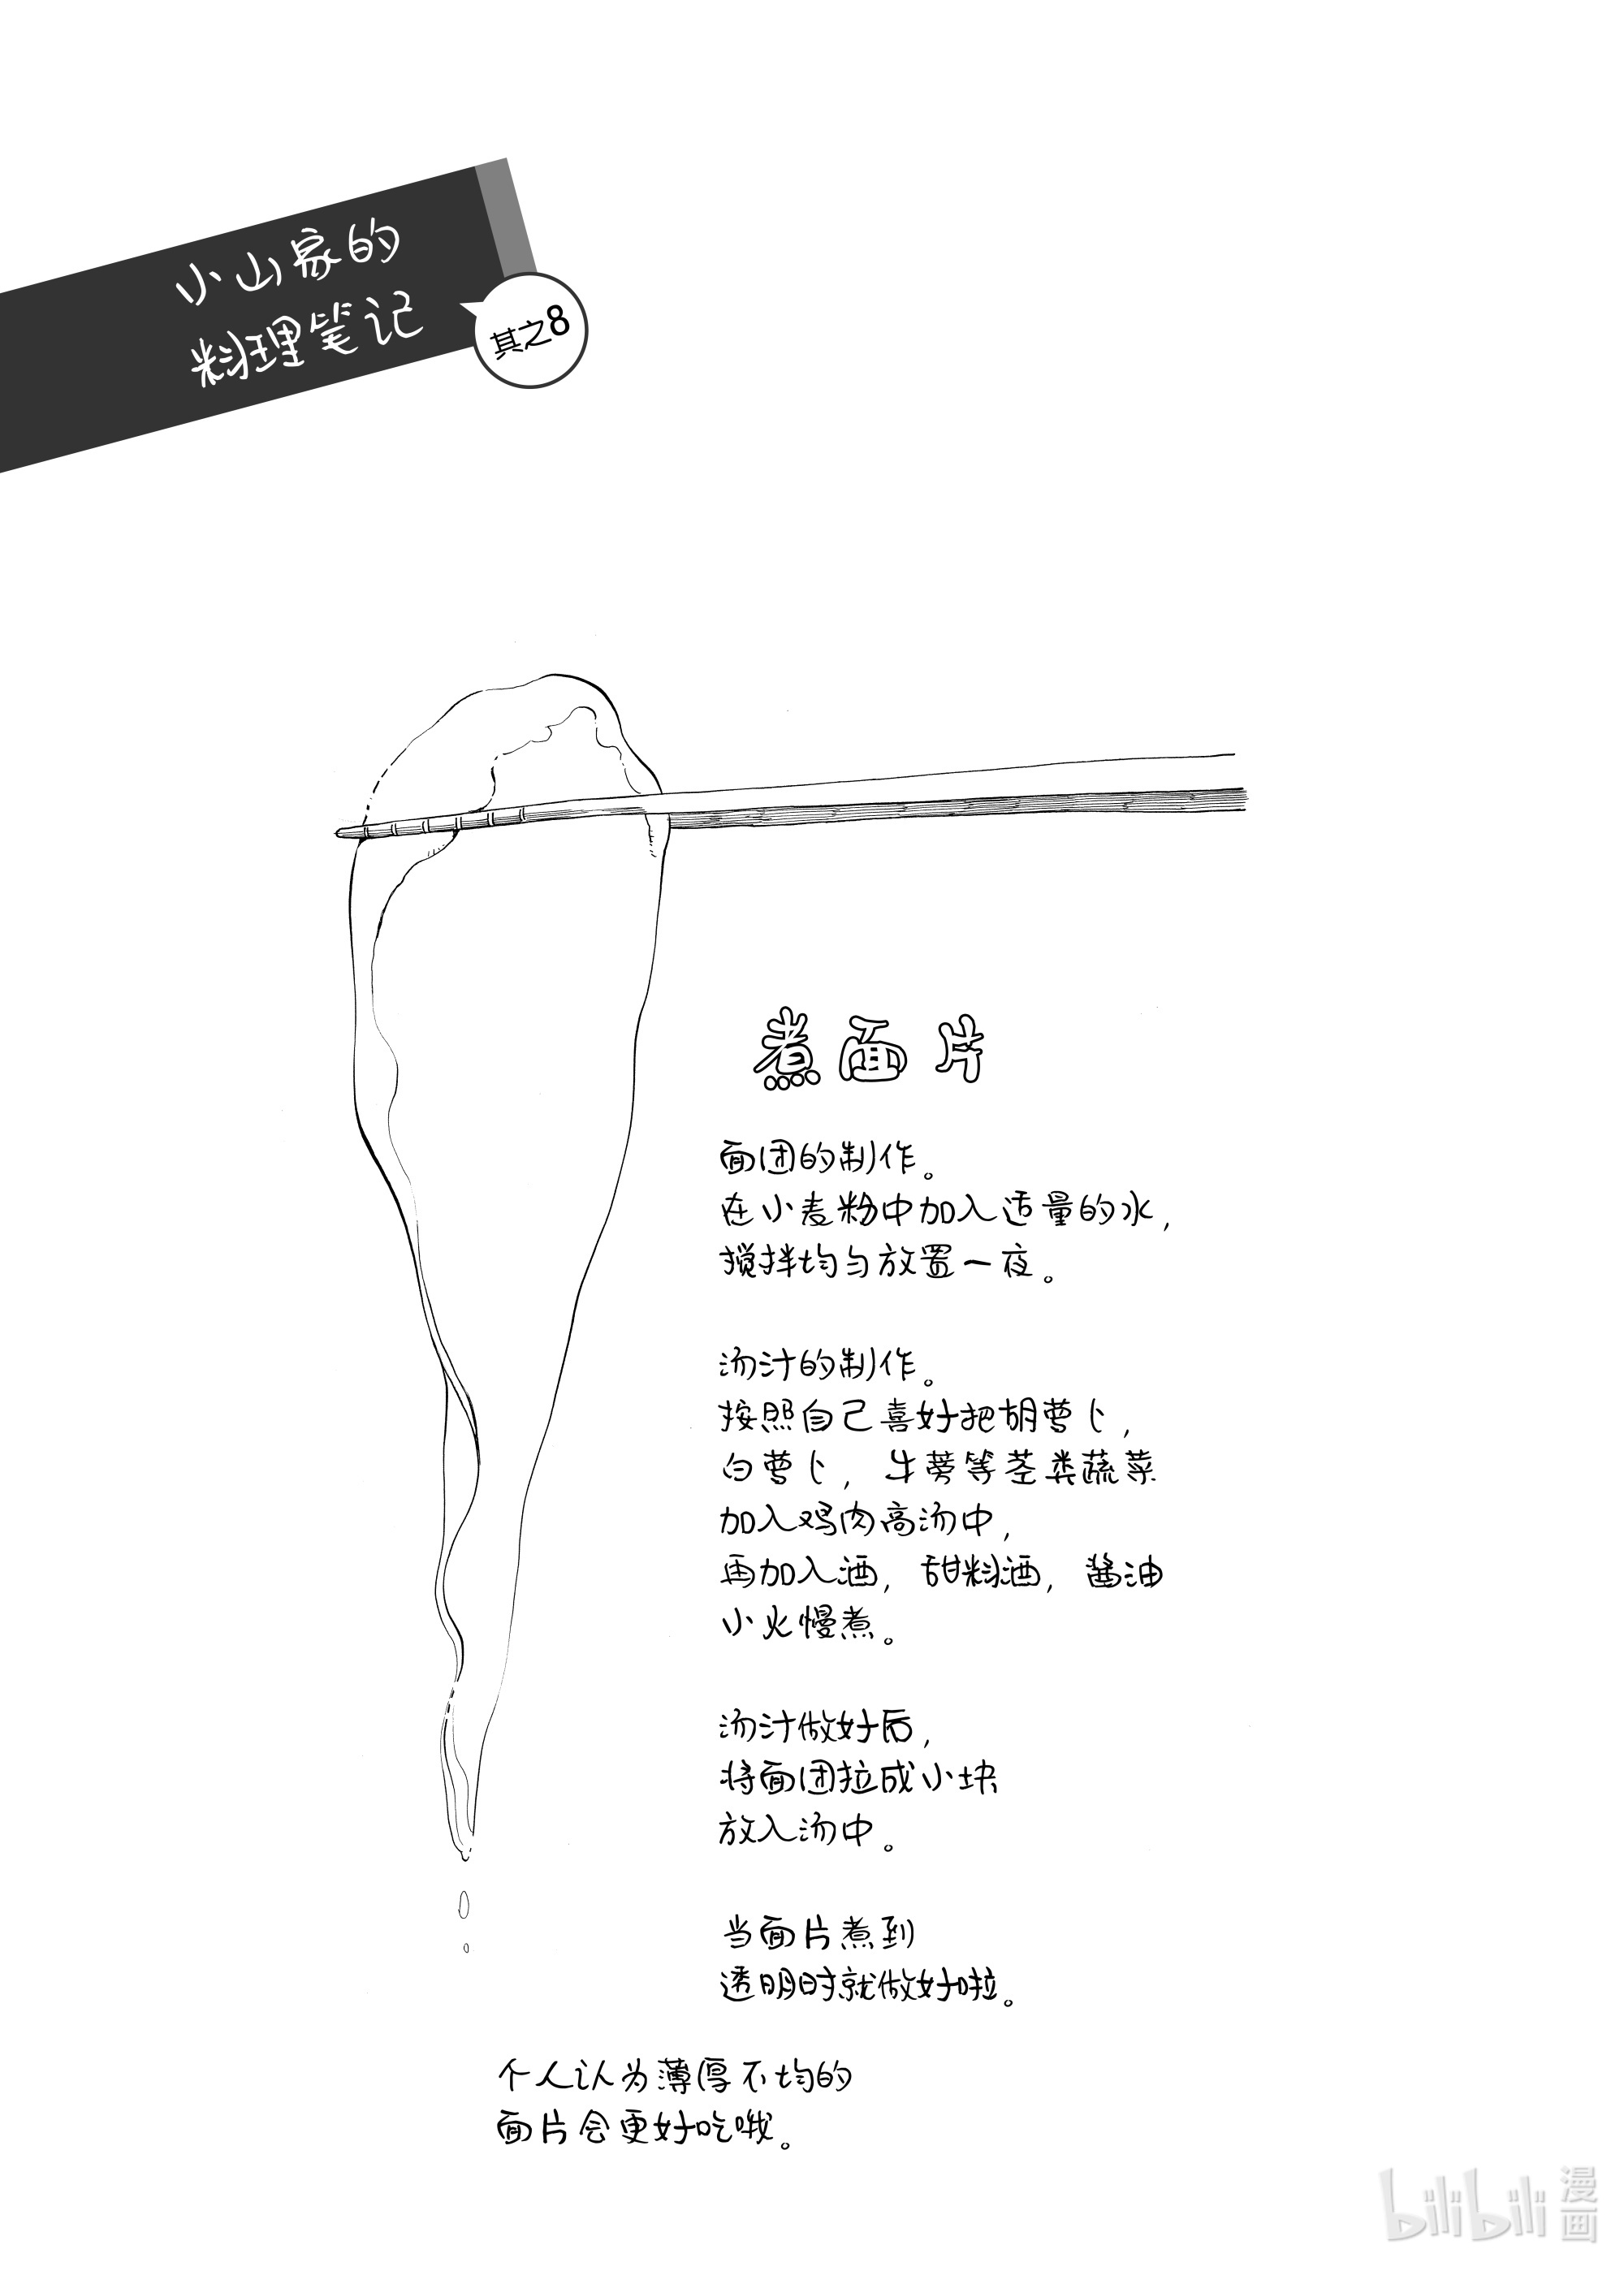 小山家的
料理笔记
其之8
煮面片
面团的制作。
在小麦粉中加入适量的水，
搅拌均匀放置一夜。
汤汁的制作。
按照自己喜好把胡萝卜，
白萝卜，牛蒡等茎类蔬菜
加入鸡肉高汤中，
再加入酒，甜料酒，酱油
小火慢煮。
汤汁做好后，
将面团拉成小块
放入汤中。
当面片煮到
透明时就做好啦。
个人认为薄厚不均的
面片会更好吃哦。
bilibili 漫画